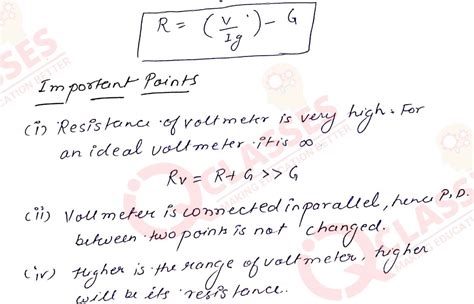 R = (V/Ig) - G
Important Points
(i) Resistance of voltmeter is very high. For
an ideal voltmeter it is ∞.
Rv = R + G >> G
(ii) Voltmeter is connected in parallel, hence P.D.
between two points is not changed.
(iv) Higher is the range of voltmeter, higher
will be its resistance.
CLASSES
MAKING EDUCATION BETTER